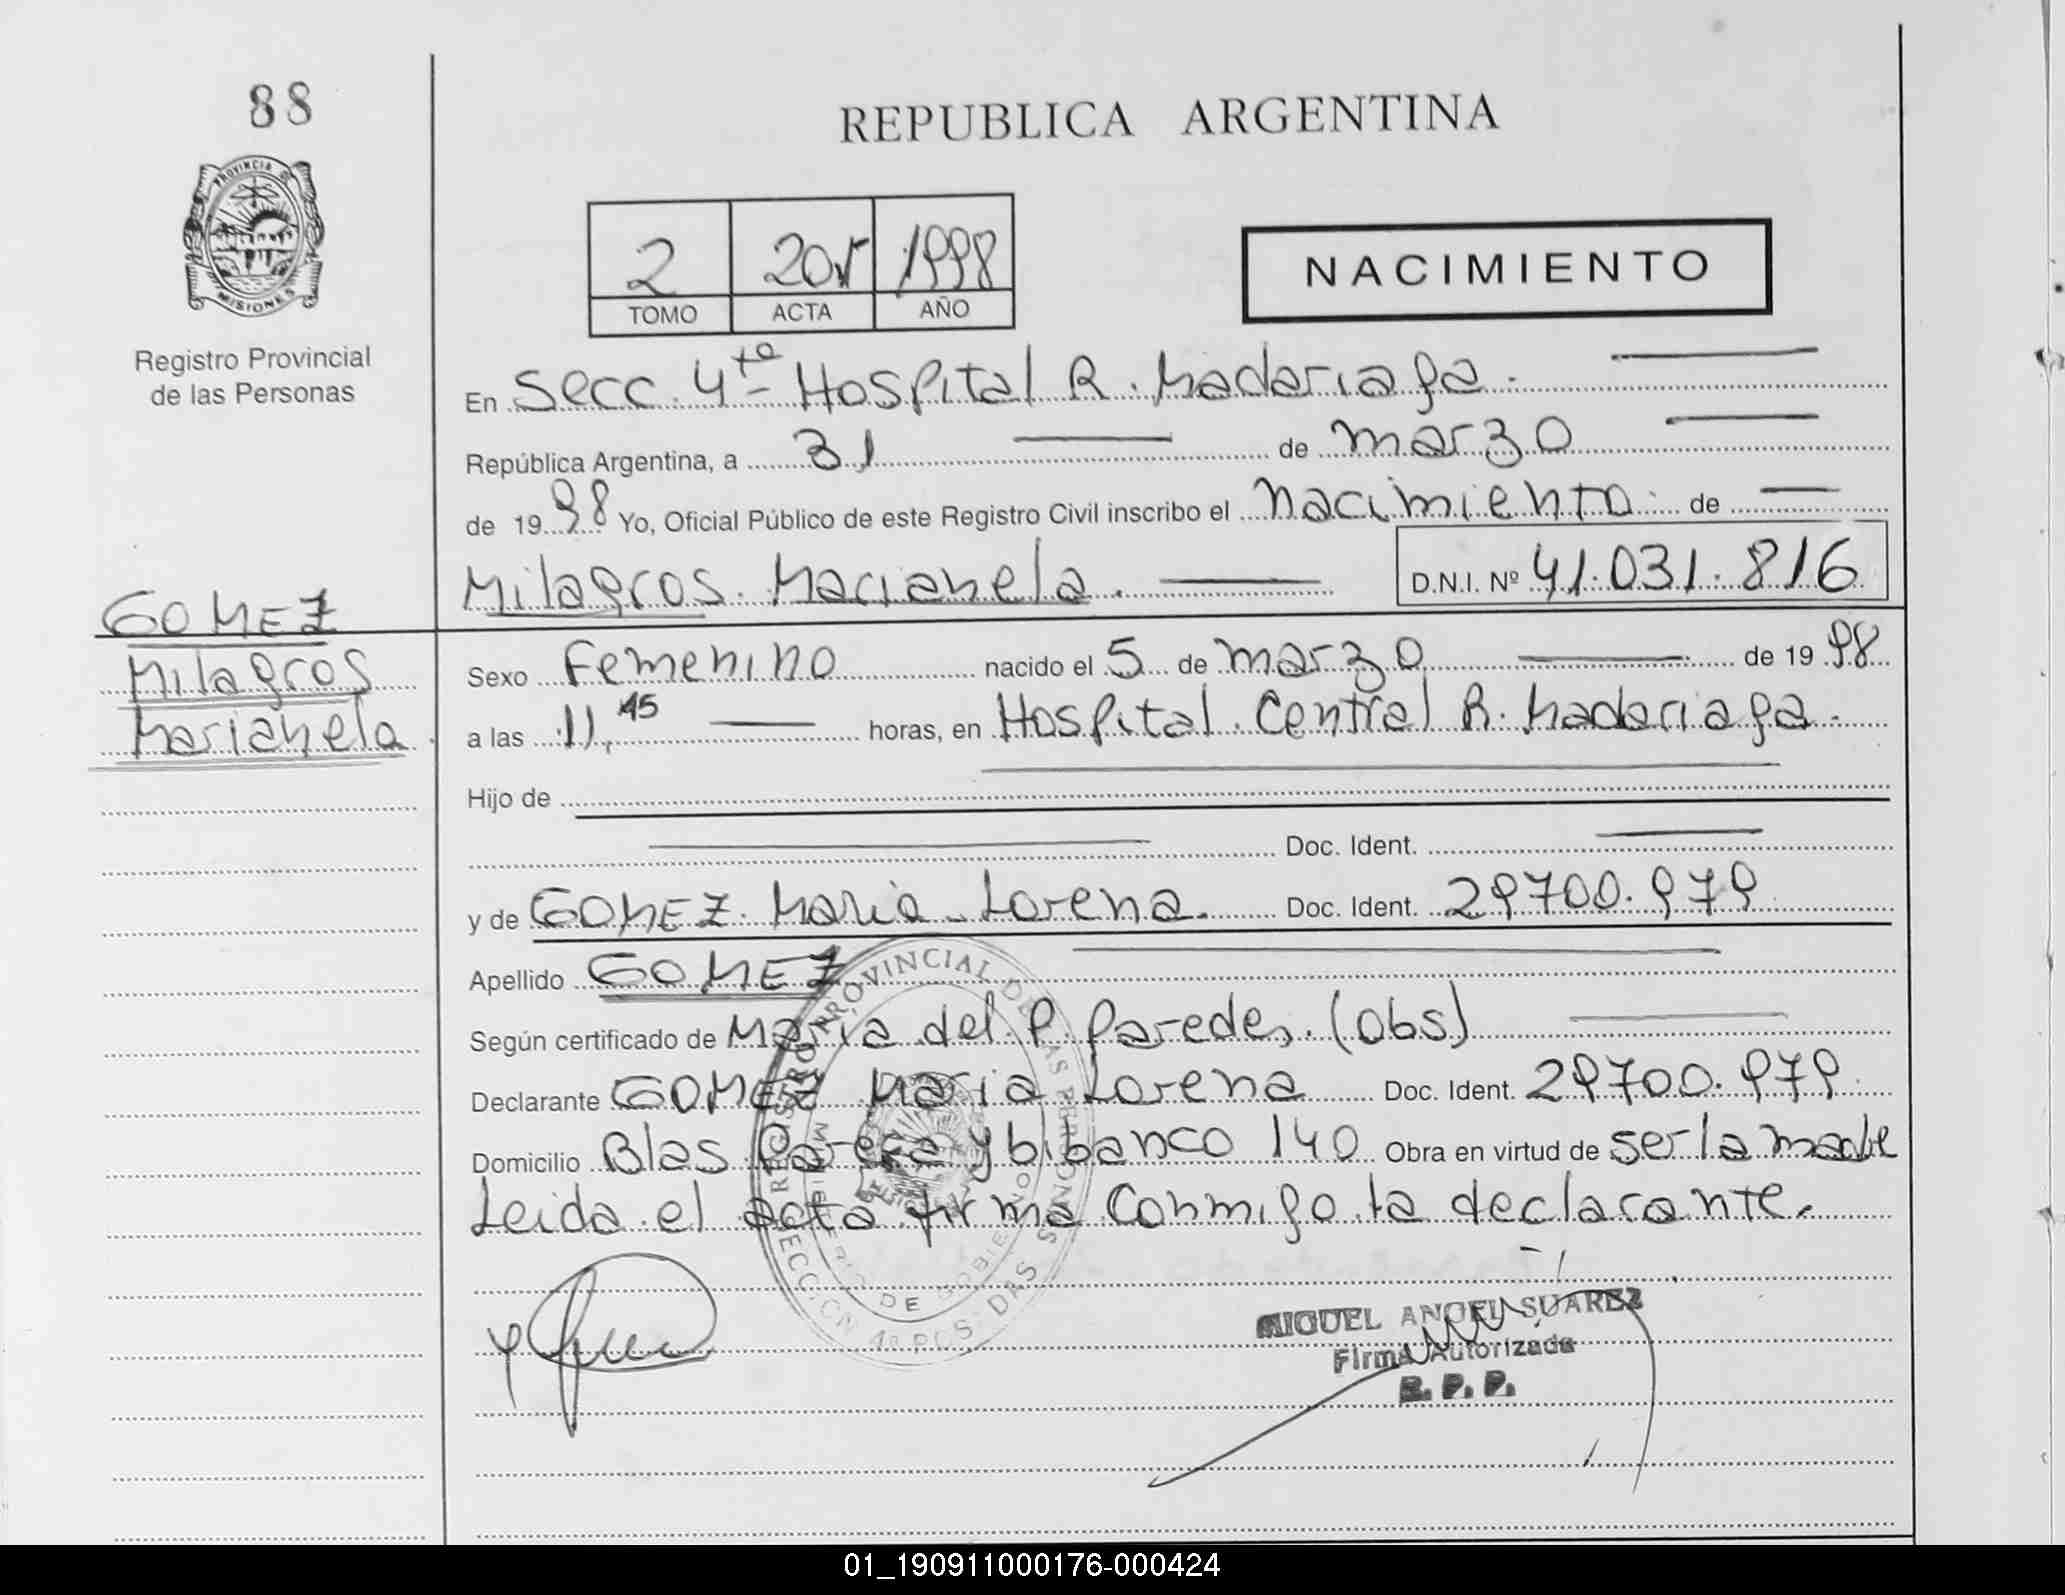 88
REPUBLICA ARGENTINA
PROVINCIA DE
MISIONES
Registro Provincial
de las Personas
2 1998
TOMO ACTA AÑO
NACIMIENTO
En Secc. 4ta Hospital R. Madariaga.
República Argentina, a 31 de marzo
de 1998 Yo, Oficial Público de este Registro Civil inscribo el nacimiento de
Milagros Marianela. D.N.I. Nº 41.031.816
GOMEZ
Milagros
Marianela.
Sexo Femenino nacido el 5 de marzo de 1998
a las 11,45 horas, en Hospital Central R. Madariaga.
Hijo de
Doc. Ident.
y de GOMEZ Maria Lorena. Doc. Ident. 29700.979
Apellido GOMEZ
Según certificado de Maria del P. Paredes. (obs)
Declarante GOMEZ Maria Lorena Doc. Ident. 29700.979
Domicilio Blas Parera y blbanco 140 Obra en virtud de ser la madre
Leida el acta firma Conmigo la declarante.
REGISTRO PROVINCIAL DE LAS PERSONAS
MIGUEL ANGEL SUAREZ
Firma Autorizada
R. P. P.
01_190911000176-000424